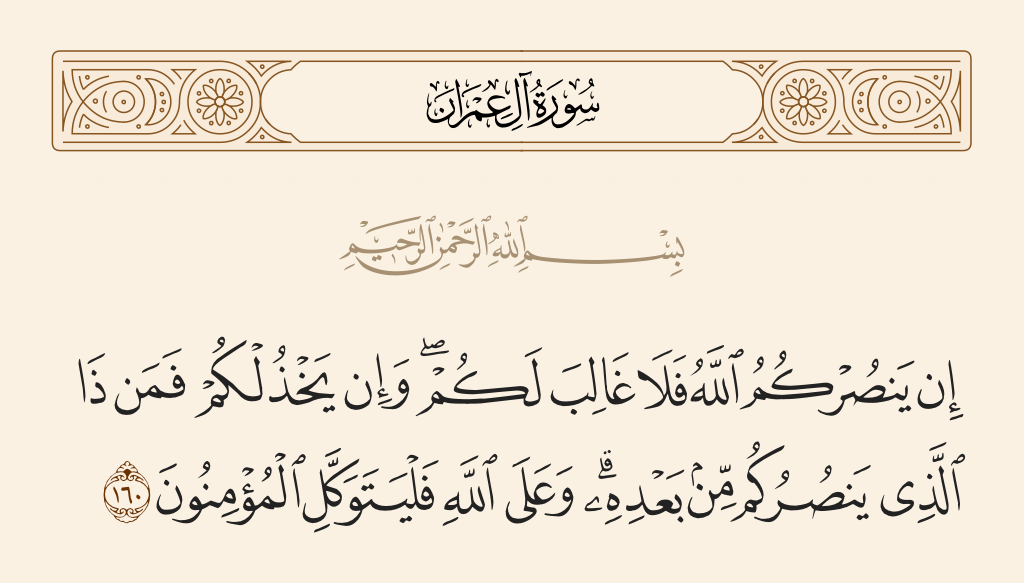 سُورَةُ آلِ عِمْرَان
بِسْمِ ٱللَّهِ ٱلرَّحْمَٰنِ ٱلرَّحِيمِ
إِن يَنصُرْكُمُ ٱللَّهُ فَلَا غَالِبَ لَكُمْ ۖ وَإِن يَخْذُلْكُمْ فَمَن ذَا
ٱلَّذِى يَنصُرُكُم مِّنۢ بَعْدِهِۦ ۗ وَعَلَى ٱللَّهِ فَلْيَتَوَكَّلِ ٱلْمُؤْمِنُونَ ١٦٠